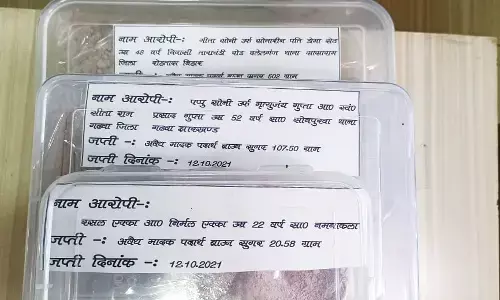 नाम आरोपी-: गीता सोनी उर्फ सोनाबीन पति
उम्र 48 वर्ष निवासी रोड थाना सासाराम
जिला रोहतास बिहार
जप्ती -: अवैध मादक पदार्थ ब्राउन सुगर 502 ग्राम
नाम आरोपी-: पप्पु सोनी उर्फ मृत्युंजय गुप्ता आ0 स्व0
सीता राम प्रसाद गुप्ता उम्र 52 वर्ष सा0 सोनपुरवा थाना
गढवा जिला गढवा झारखण्ड
जप्ती -: अवैध मादक पदार्थ ब्राउन सुगर 107.50 ग्राम
जप्ती दिनांक -: 12.10.2021
नाम आरोपी-:
एक्का आ0 निर्मल एक्का उम्र 22 वर्ष सा0 नमनाकला
जप्ती -: अवैध मादक पदार्थ ब्राउन सुगर 20.58 ग्राम
जप्ती दिनांक -: 12.10.2021